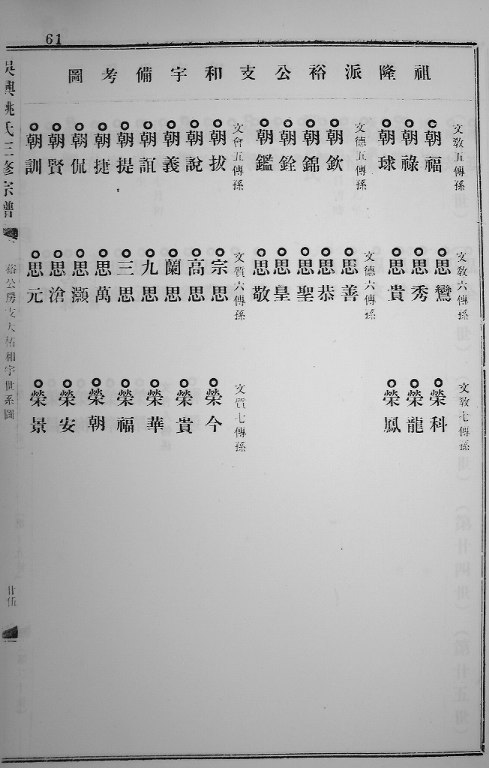 61
祖隆派裕公支和宇備考圖
文敎五傳孫
朝福
朝祿
朝球
文德五傳孫
朝欽
朝錦
朝銓
朝鑑
文會五傳孫
朝拔
朝說
朝義
朝誼
朝提
朝捷
朝侃
朝賢
朝訓
文敎六傳孫
思鸞
思秀
思貴
文德六傳孫
思善
思恭
思聖
思皇
思敬
文質六傳孫
宗思
高思
蘭思
九思
三思
思萬
思灝
思滄
思元
文敎七傳孫
榮科
榮龍
榮鳳
文質七傳孫
榮今
榮貴
榮華
榮福
榮朝
榮安
榮景
吳興姚氏三修宗譜
裕公房支大祐和宇世系圖
廿伍